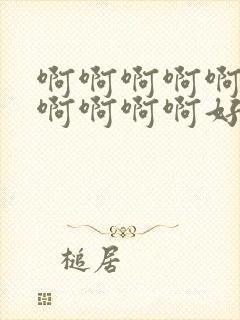 啊啊啊啊啊
啊啊啊啊好
槌居